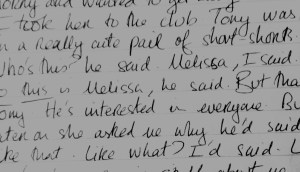 and wanted to get
I took her to the club Tony was
in a really cute pair of short-shorts.
Who's this? he said. Melissa, I said.
So this is Melissa, he said. But that
Tony He's interested in everyone. But
later on she asked me why he'd said
like that. Like what? I'd said.
about